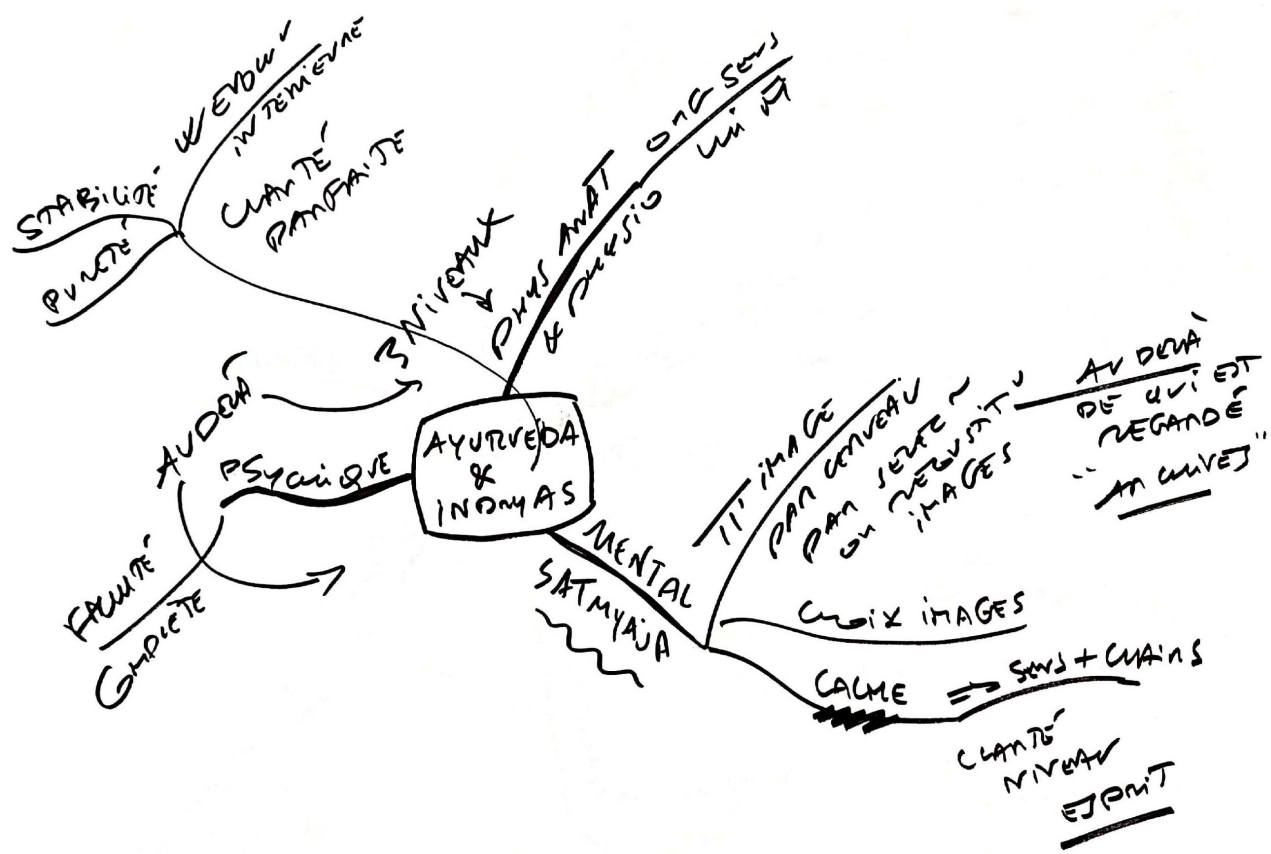 AYURVEDA
&
INDRYAS
3 NIVEAUX
PHYS ANAT
& PHYSIO
ORG SENS
STABILITÉ
PURETÉ
INTERIEURE
CLARTÉ
PARFAITE
AU DELÁ
PSYCHIQUE
FACULTÉ
COMPLÈTE
MENTAL
SATMYAJA
IMAGE
PAR CERVEAU
PAR SELEC
OU
IMAGES
AU DELÀ
DE QUI EST
REGARDÉ
"ARCHIVES"
CHOIX IMAGES
CALME
=> SENS + CLAIRS
CLARTÉ
NIVEAU
ESPRIT